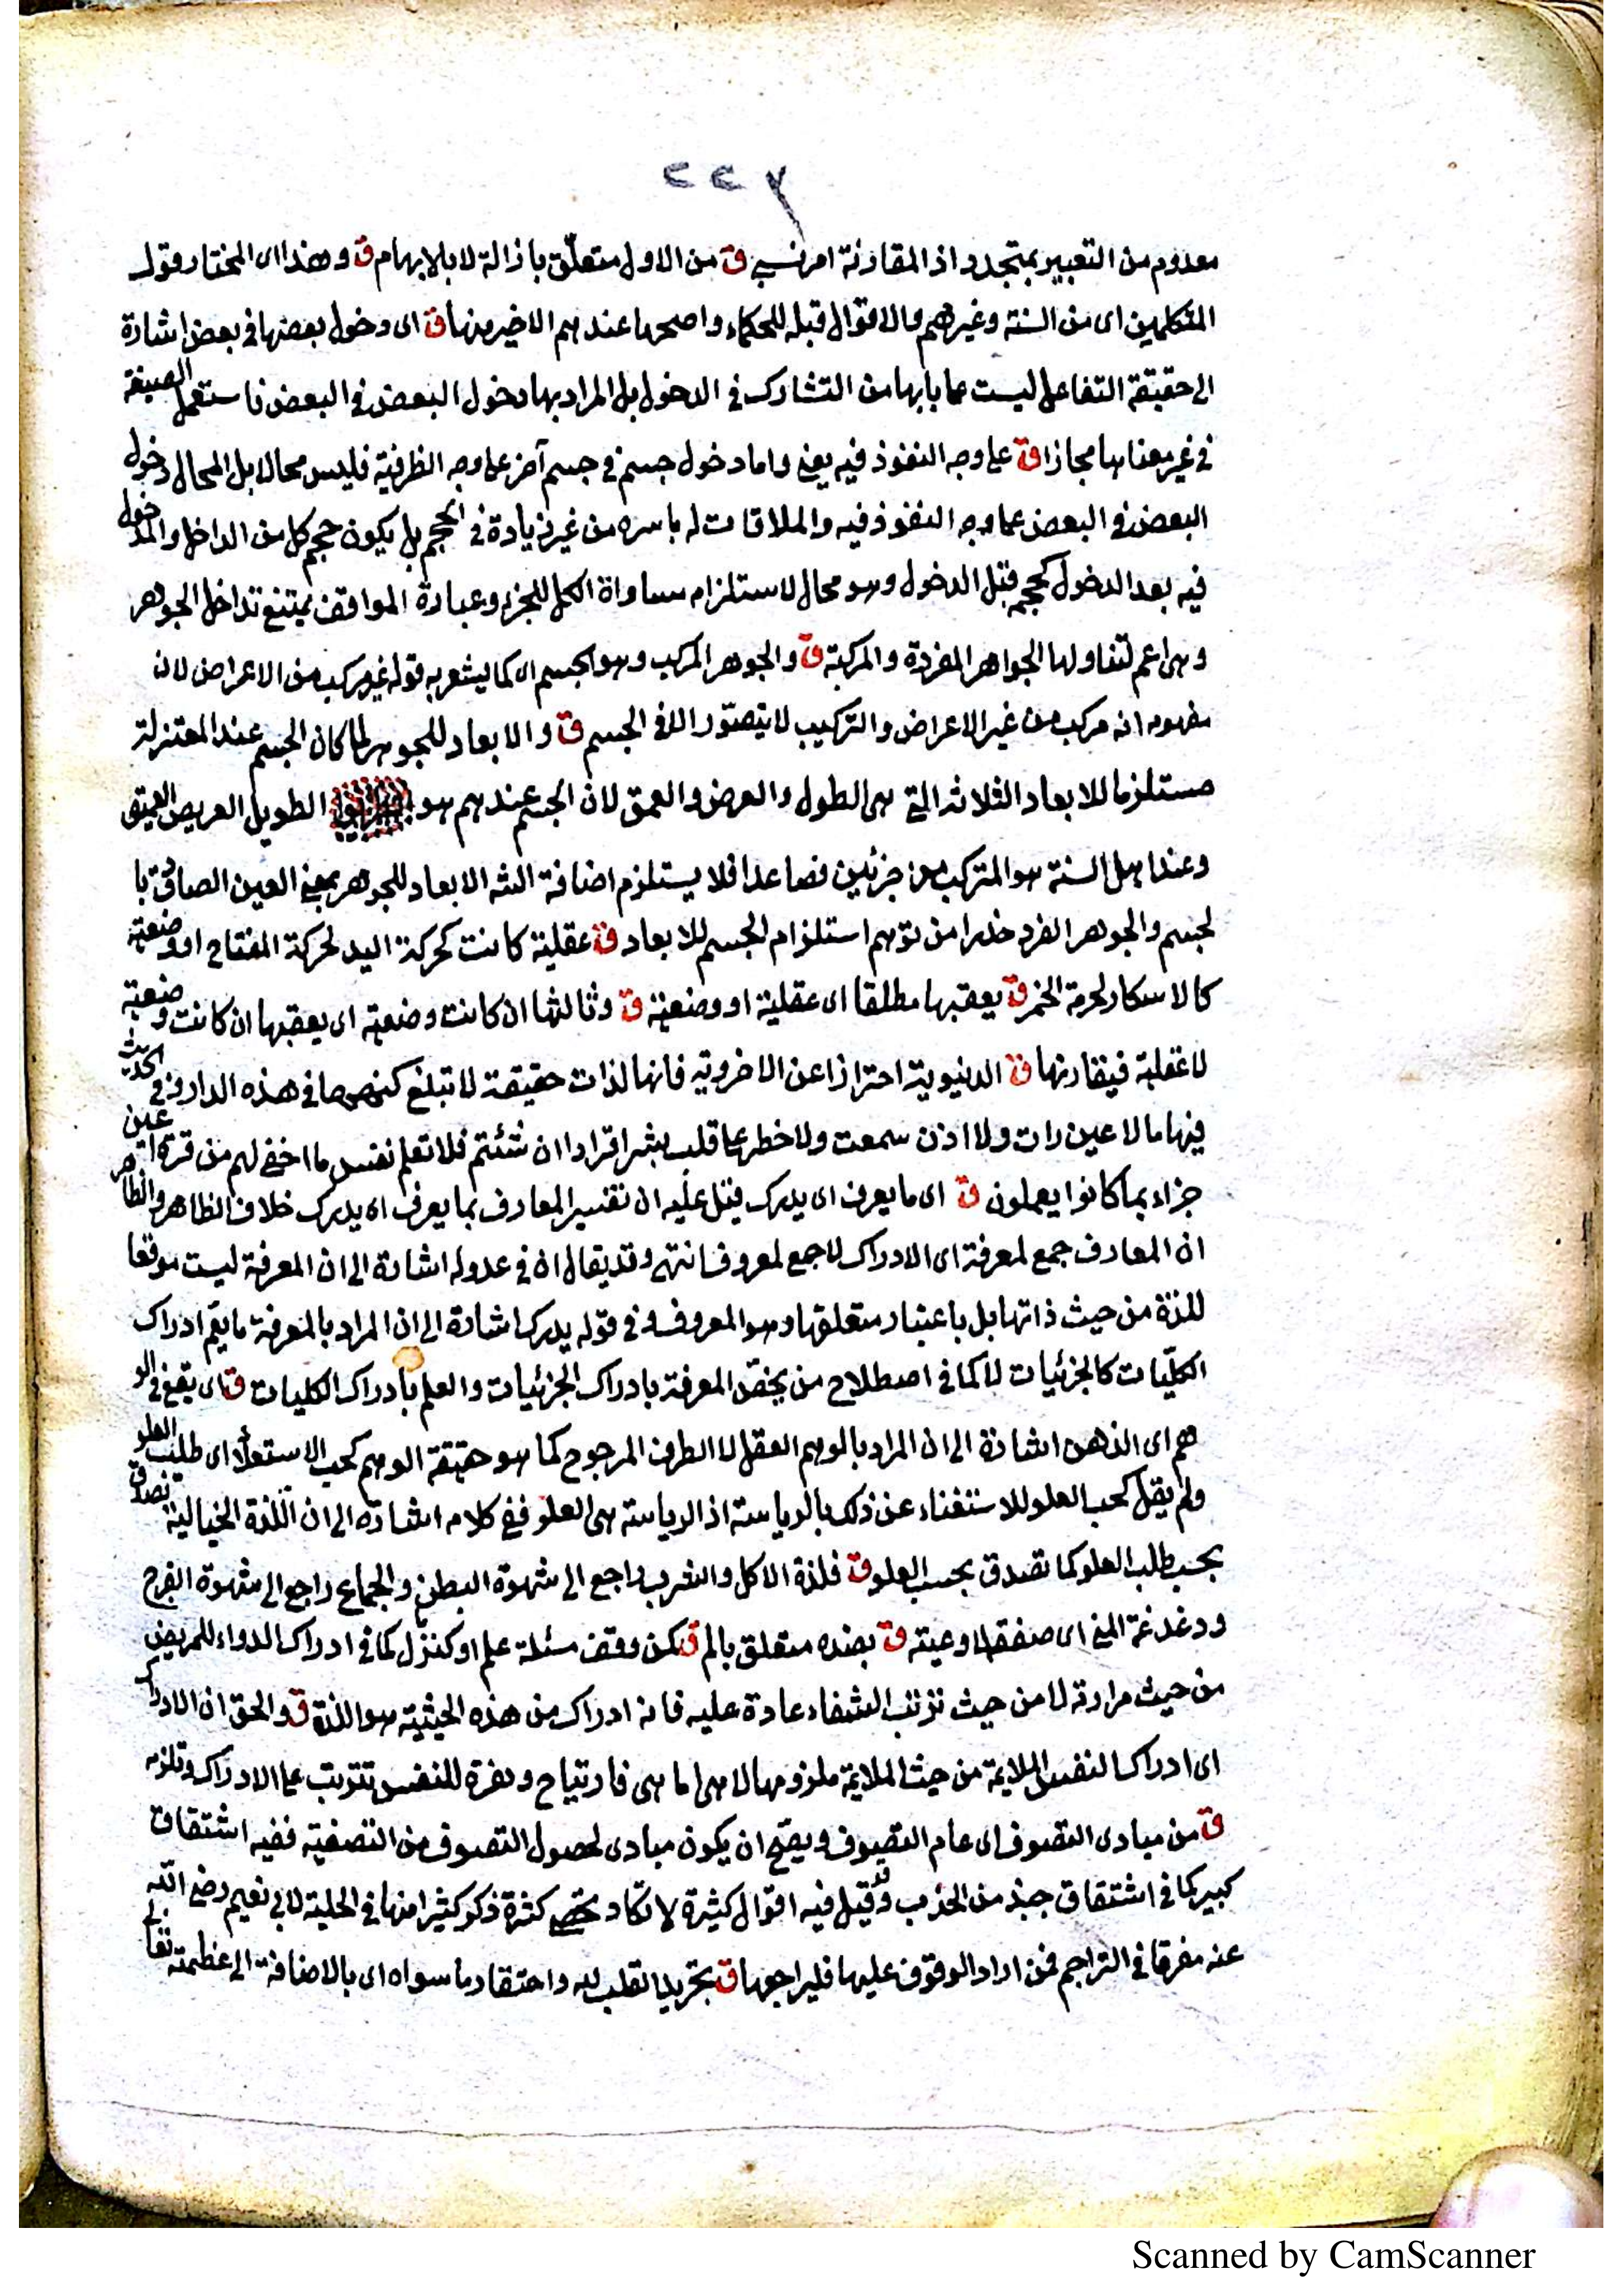 ٢٢٧
معدوم من التعبير بمتجدد اذ المقارنة امر نسبي ق من الاول متعلّق بازالة لا بالابهام ق وهذا اى المختار قول
المتكلمين اى من السنة وغيرهم والاقوال قبله للحكماء واصحها عندهم الاخير منها ق اى دخول بعضها في بعض اشارة
الى حقيقة التفاعل ليست على بابها من التشارك في الدخول بل المراد بها دخول البعض في البعض فاستعمل الصيغة
في غير معناها مجازا ق على وجه النفوذ فيه يعنى واما دخول جسم في جسم آخر على وجه الظرفية فليس محالا بل المحال دخول
البعض في البعض على وجه النفوذ فيه والملاقات له باسره من غير زيادة في الحجم بل يكون حجم كل من الداخل والمدخول
فيه بعد الدخول كحجمه قبل الدخول وهو محال لاستلزام مساواة الكل للجزء وعبارة المواقف يمتنع تداخل الجوهر
وهى اعم لتناولها الجواهر المفردة والمركبة ق والجوهر المركب وهو الجسم اى كما يشعر به قوله غير مركب من الاعراض لان
مفهومه انه مركب من غير الاعراض والتركيب لا يتصوّر الا في الجسم ق والابعاد للجوهر لما كان الجسم عند المعتزلة
مستلزما للابعاد الثلاثة التى هى الطول والعرض والعمق لان الجسم عندهم هو الطويل العريض العميق
وعند اهل السنة هو المتركب من جزئين فصاعدا فلا يستلزم اضافة الابعاد للجوهر بمعنى العين الصادق با
لجسم والجوهر الفرد حذرا من توهم استلزام الجسم للابعاد ق عقلية كانت كحركة اليد لحركة المفتاح او وضعية
كالاسكار لحرمة الخمر ق يعقبها مطلقا اى عقلية او وضعية ق وثالثها ان كانت وضعية اى يعقبها ان كانت وضعية
لا عقلية فيقارنها ق الدنيوية احترازا عن الاخروية فانها لذات حقيقة لا تبلغ كنهها في هذه الدار ففى الحديث
فيها ما لا عين رات ولا اذن سمعت ولا خطر على قلب بشر اقراوا ان شئتم فلا تعلم نفس ما اخفى لهم من قرة اعين
جزاء بما كانوا يعملون ق اى ما يعرف اى يدرك قيل عليه ان تفسير المعارف بما يعرف اى يدرك خلاف الظاهر والظاهر
ان المعارف جمع لمعرفة اى الادراك لا جمع لمعروف انتهى وقد يقال ان في عدوله اشارة الى ان المعرفة ليست موقعا
للذة من حيث ذاتها بل باعتبار متعلقها وهو المعروف وفي قوله يدرك اشارة الى ان المراد بالمعرفة ما يعم ادراك
الكلّيات كالجزئيات لا كما في اصطلاح من يخصّ المعرفة بادراك الجزئيات والعلم بادراك الكليات ق اى يقع في الو
هم اى الذهن اشارة الى ان المراد بالوهم العقل لا الطرف المرجوح كما هو حقيقة الوهم كحب الاستعلاء اى طلب العلو
ولم يقل كحب العلو للاستغناء عن ذلك بالرياسة اذ الرياسة هى العلو ففى كلامه اشارة الى ان اللذة الخيالية تصدق
بحب طلب العلو كما تصدق بحب العلو ق فلذة الاكل والشرب راجع الى شهوة البطن والجماع راجع الى شهوة الفرج
ودغدغة المنى اى اوعيته ق بضده متعلق بالم ق كمن وقف مسئلة علم او كنز ل كما في ادراك الدواء للمريض
من حيث مرارته لا من حيث ترتب الشفاء عادة عليه فانه ادراك من هذه الحيثية هو اللذة ق والحق ان الادراك
اى ادراك النفس الملايمة من حيث الملايمة ملزومها لا هى اما هى فارتياح ونفرة للنفس تترتب على الادراك وتلزمه
ق من مبادى التصوف اى علم التصوف ويصح ان يكون مبادى لحصول التصوف من التصفية ففيه اشتقاق
كبير كما في اشتقاق جبذ من الجذب وقد قيل فيه اقوال كثيرة لا تكاد تحصى كثرة ذكر كثيرا منها في الحلية لابي نعيم رضى الله
عنه مفرقا في التراجم فمن اراد الوقوف عليها فليراجعها ق تجريد القلب لله واحتقار ما سواه اى بالاضافة الى عظمته تعالى
Scanned by CamScanner